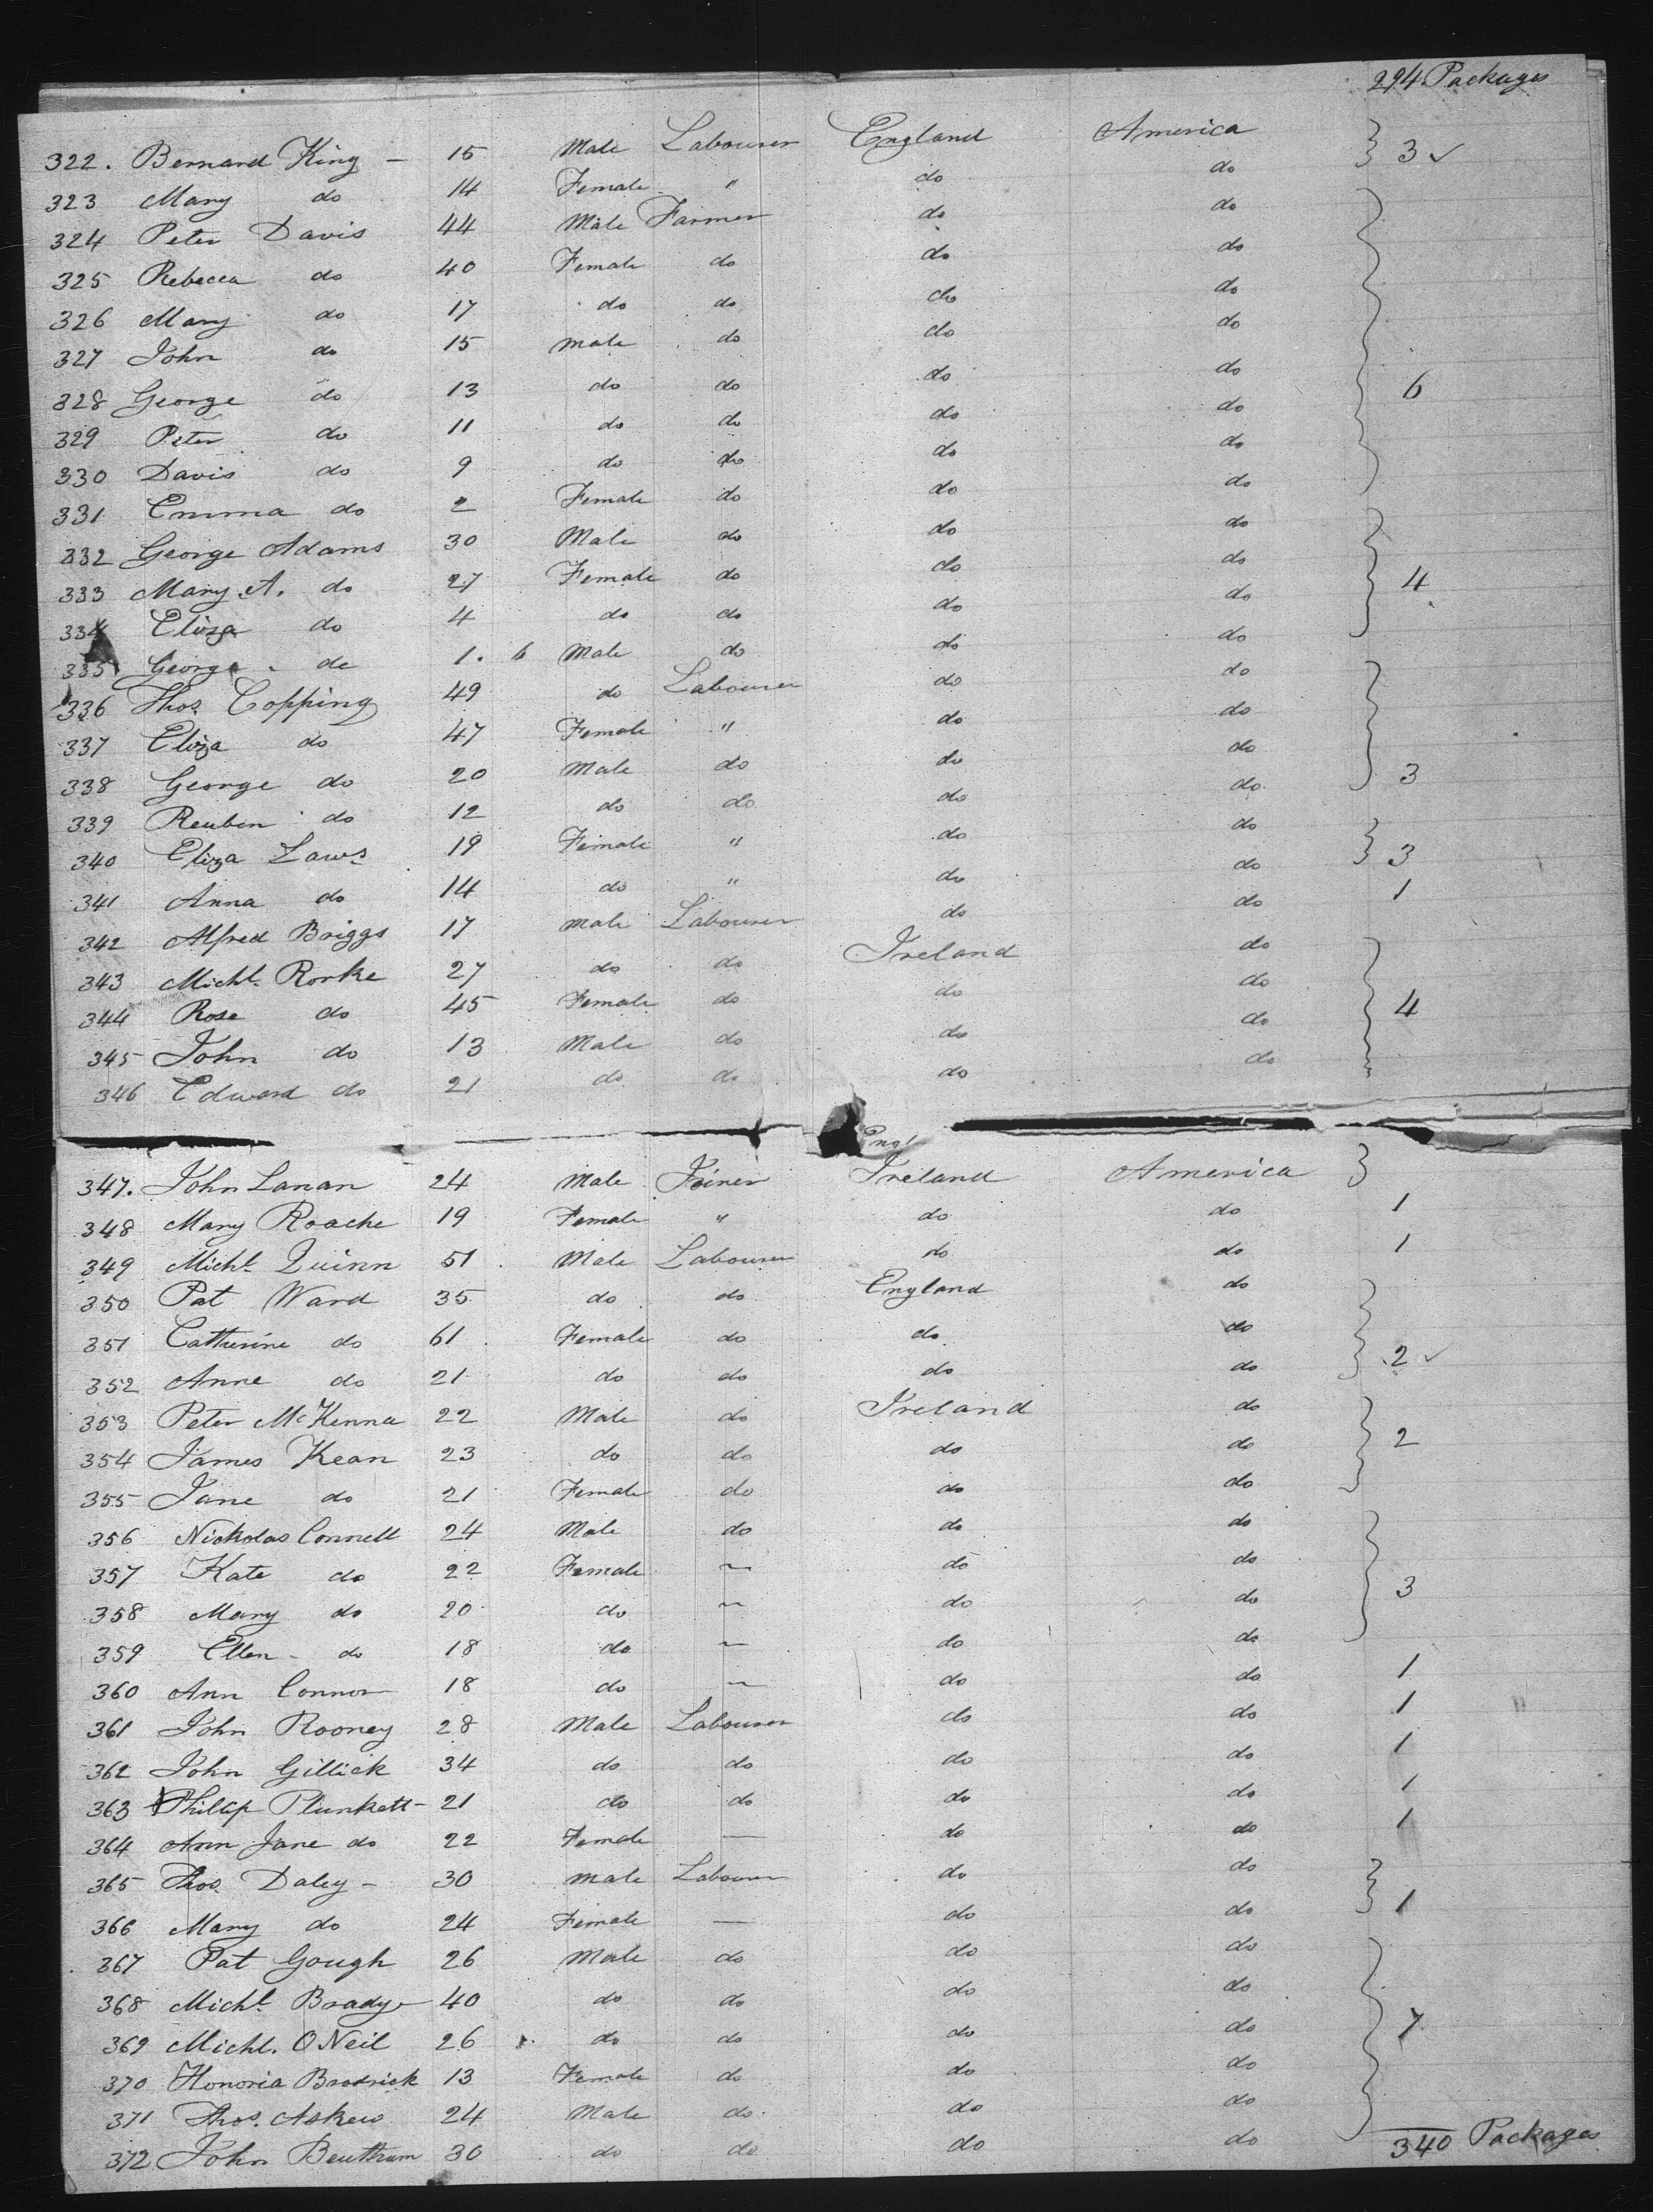 294 Packages
322. Bernard King - 15 Male Labourer England America 3 ✓
323 Mary do 14 Female " do do
324 Peter Davis 44 Male Farmer do do
325 Rebecca do 40 Female do do do
326 Mary do 17 do do do do
327 John do 15 male do do do
328 George do 13 do do do do 6
329 Peter do 11 do do do do
330 Davis do 9 do do do do
331 Emma do 2 Female do do do
332 George Adams 30 Male do do do
333 Mary A. do 27 Female do do do 4
334 Eliza do 4 do do do do
335 George do 1. 6 Male do do do
336 Thos. Copping 49 do Labourer do do
337 Eliza do 47 Female " do do
338 George do 20 Male do do do 3
339 Reuben do 12 do do do do
340 Eliza Laws 19 Female " do do 3
341 Anna do 14 do " do do 1
342 Alfred Briggs 17 male Labourer do do
343 Michl. Rorke 27 do do Ireland do
344 Rose do 45 Female do do do 4
345 John do 13 Male do do do
346 Edward do 21 do do do do
Engl
347. John Lanan 24 Male Joiner Ireland America
348 Mary Roache 19 Female " do do 1
349 Michl. Quinn 51 Male Labourer do do 1
350 Pat Ward 35 do do England do
351 Catherine do 61 Female do do do
352 Anne do 21 do do do do 2 ✓
353 Peter McKenna 22 Male do Ireland do
354 James Kean 23 do do do do 2
355 Jane do 21 Female do do do
356 Nickolas Connell 24 Male do do do
357 Kate do 22 Female ~ do do
358 Mary do 20 do ~ do do 3
359 Ellen - do 18 do ~ do do
360 Ann Connor 18 do ~ do do 1
361 John Rooney 28 Male Labourer do do 1
362 John Gillick 34 do do do do 1
363 Philip Plunkett - 21 do do do do 1
364 Ann Jane do 22 Female — do do 1
365 Thos. Daley - 30 male Labourer do do
366 Mary do 24 Female — do do 1
367 Pat Gough 26 Male do do do
368 Michl. Brady - 40 do do do do
369 Michl. O Neil 26 do do do do 7
370 Honoria Brodrick 13 Female do do do
371 Thos. Askew 24 Male do do do
372 John Beuttram 30 do do do do
340 Packages